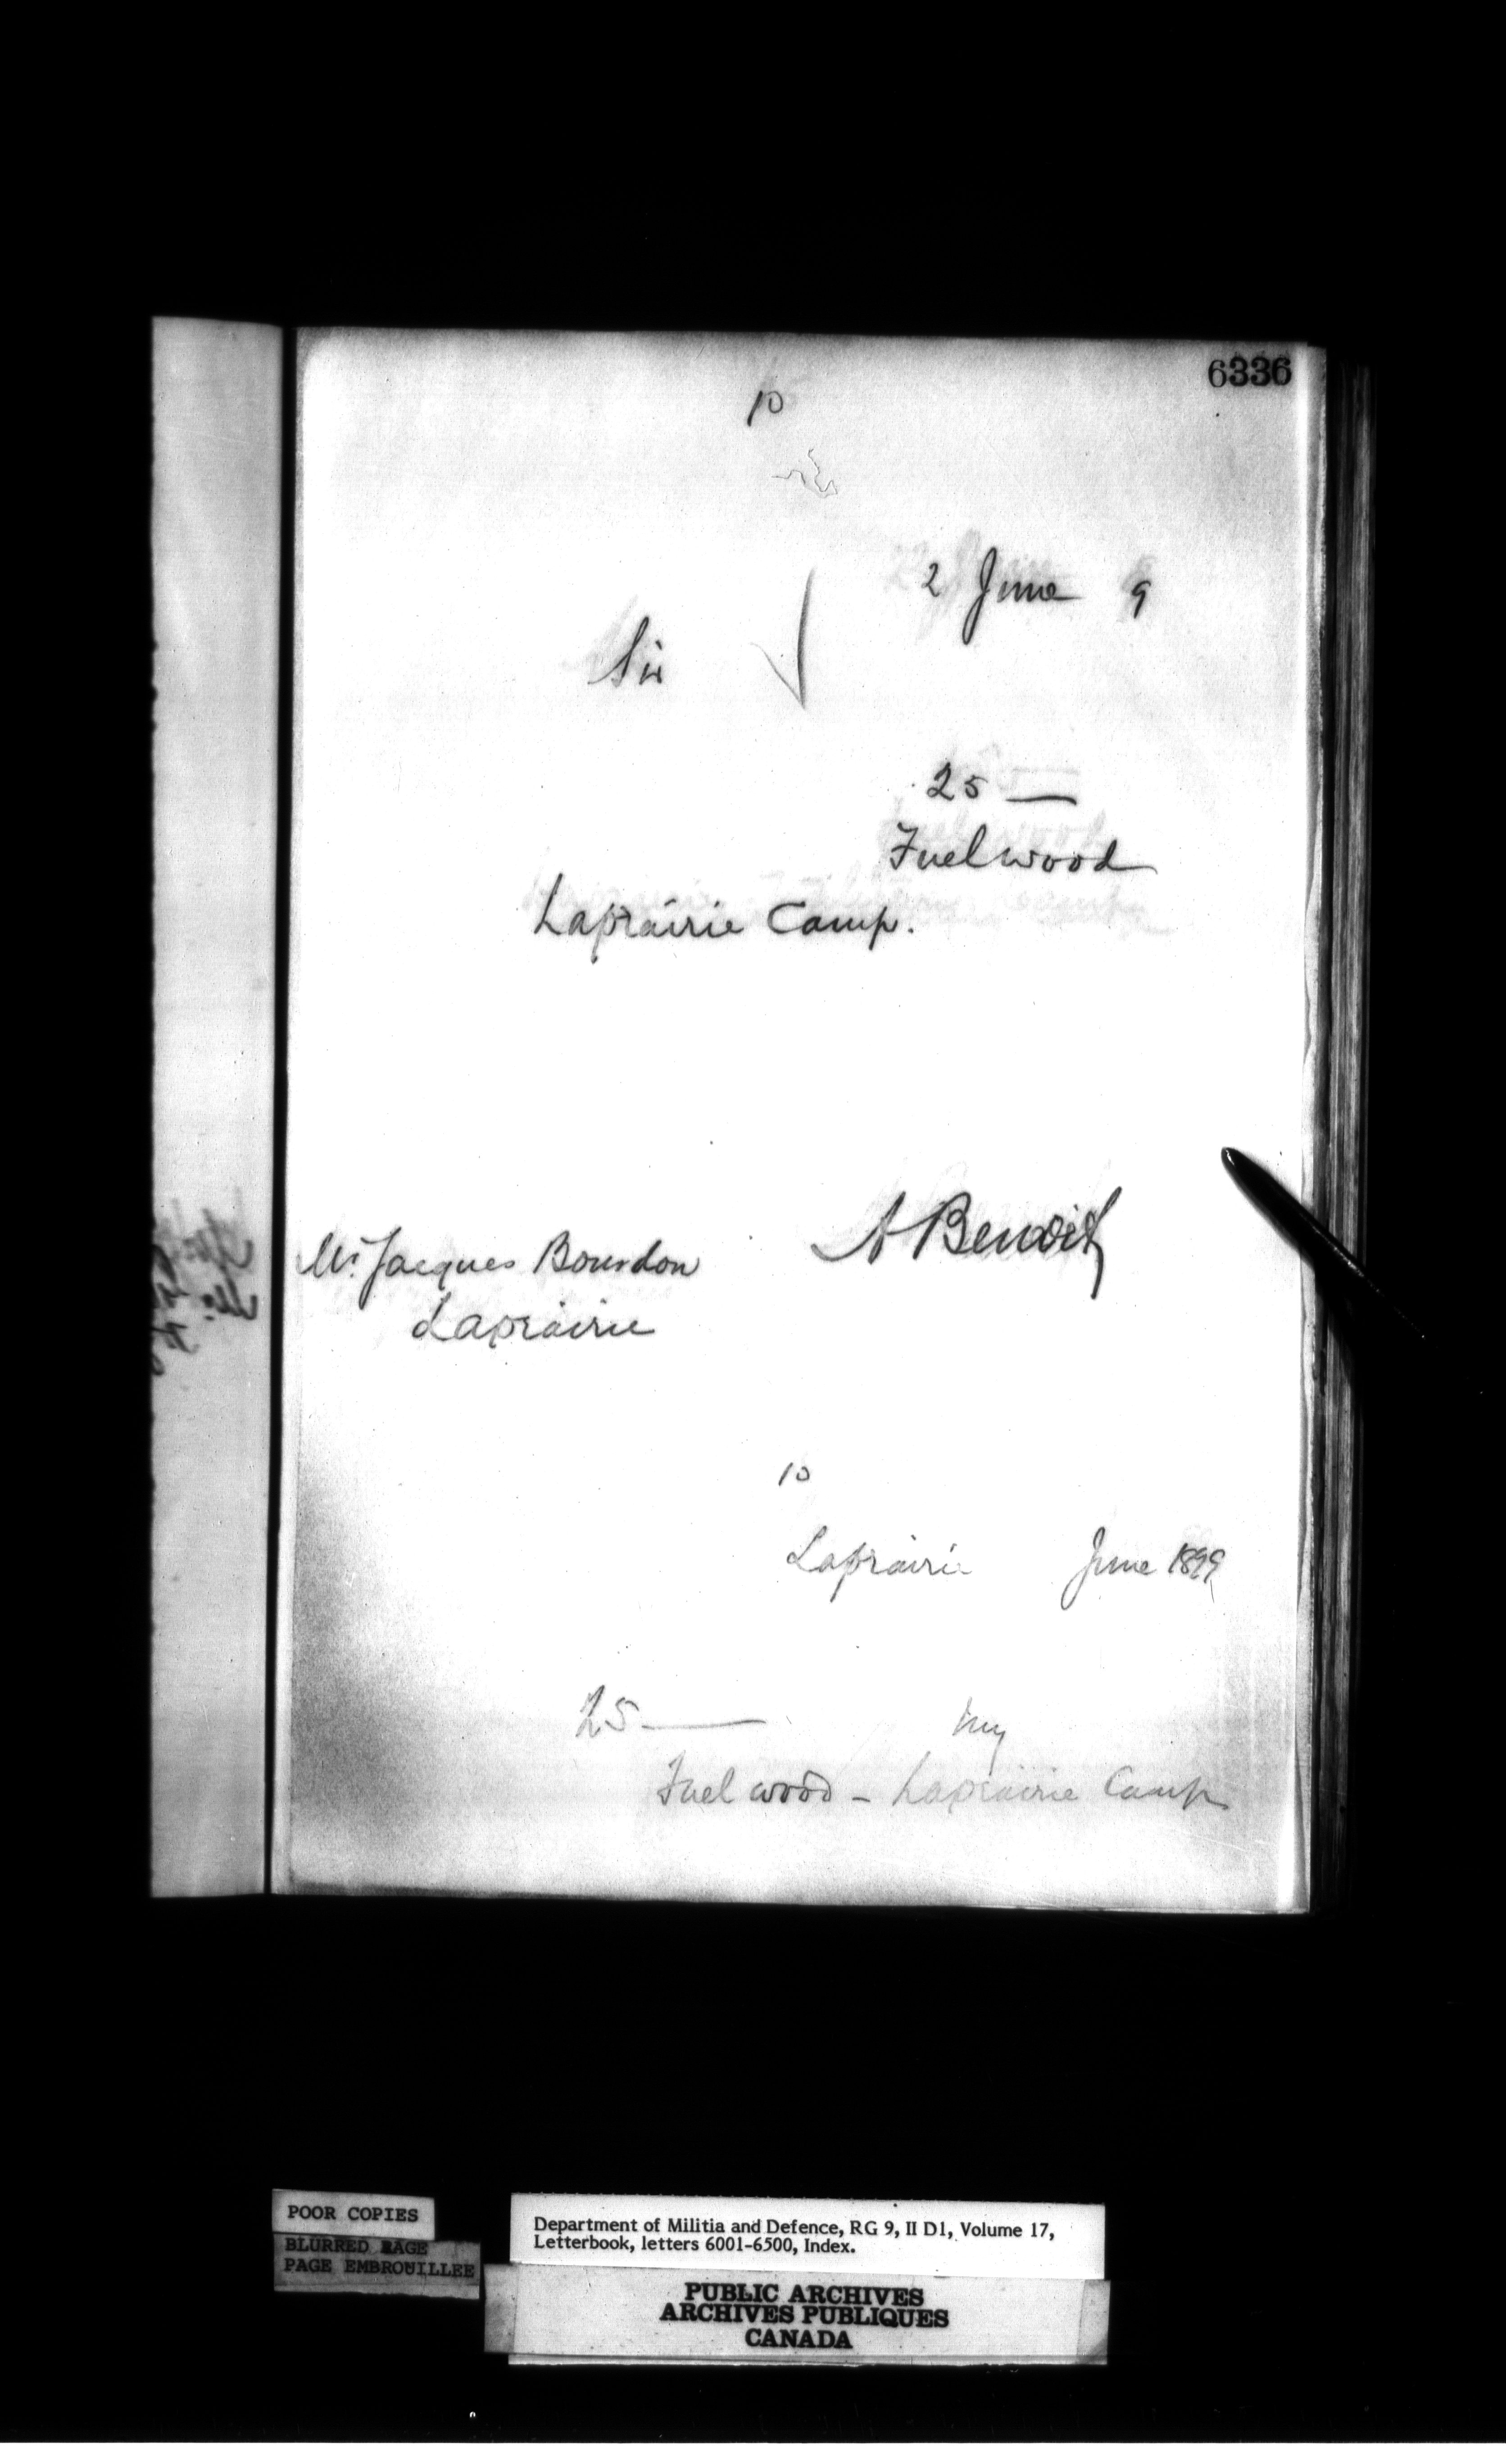 6336
10
2 June 9
Sir
25 —
Fuelwood
Laprairie Camp.
A Benoit
Mr. Jacques Bourdon
Laprairie
10
Laprairie June 1899
25 — my
Fuel wood - Laprairie Camp
POOR COPIES
BLURRED PAGE
PAGE EMBROUILLEE
Department of Militia and Defence, RG 9, II D1, Volume 17,
Letterbook, letters 6001-6500, Index.
PUBLIC ARCHIVES
ARCHIVES PUBLIQUES
CANADA